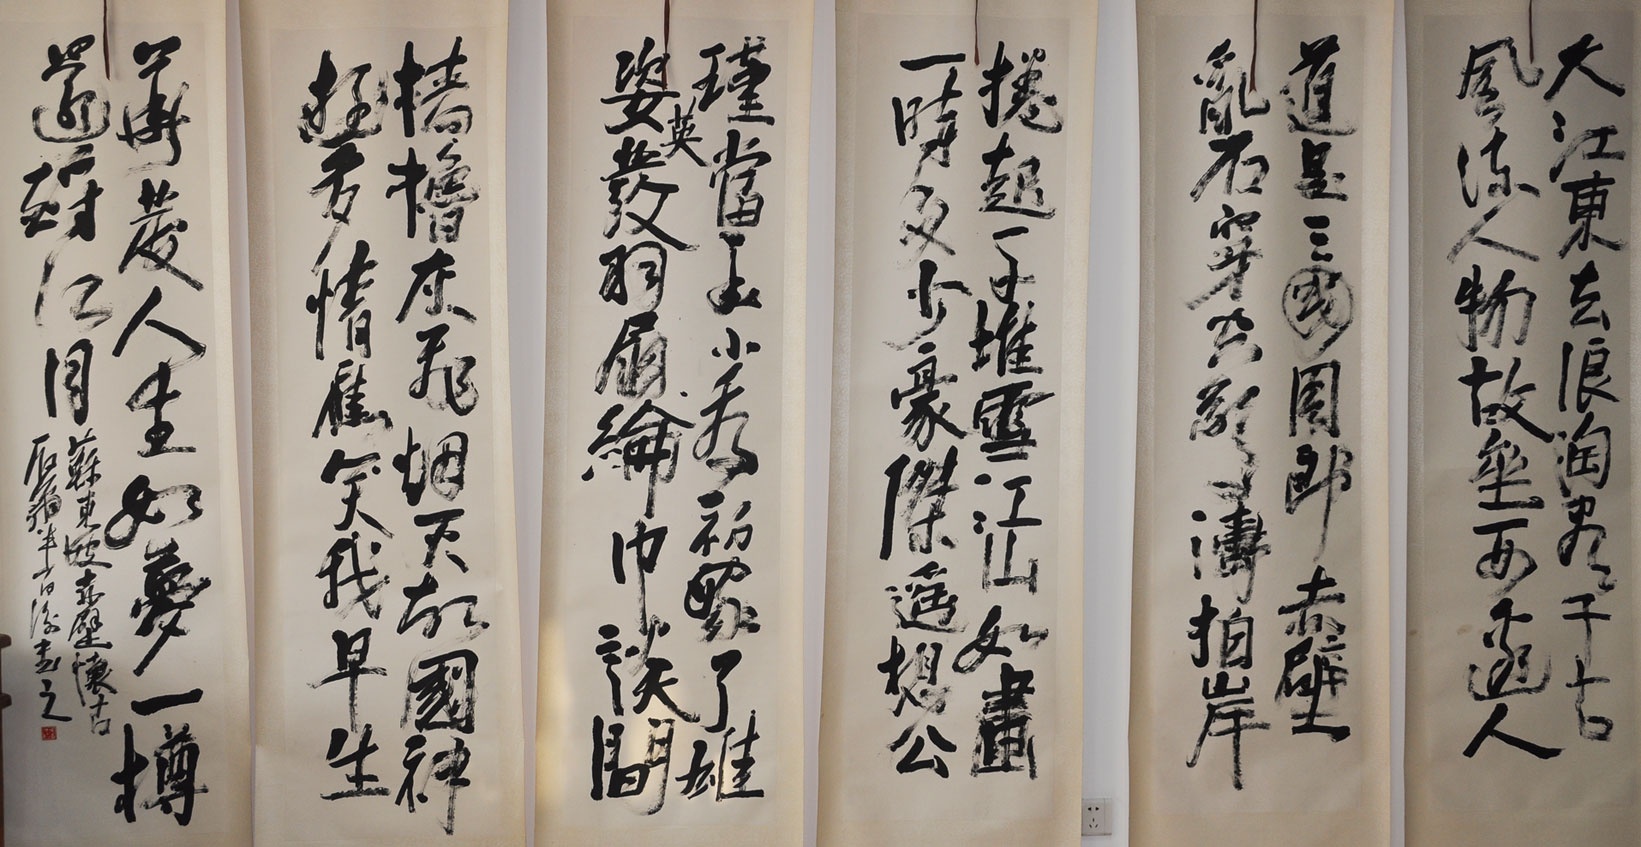 大江東去浪淘盡千古
風流人物故壘西邊人
道是三國周郎赤壁
亂石穿空驚濤拍岸
捲起千堆雪江山如畫
一時多少豪傑遙想公
瑾當年小喬初嫁了雄
姿英發羽扇綸巾談間
檣櫓灰飛烟灭故國神
遊多情應笑我早生
華髮人生如夢一樽
還酹江月
蘇東坡赤壁懷古